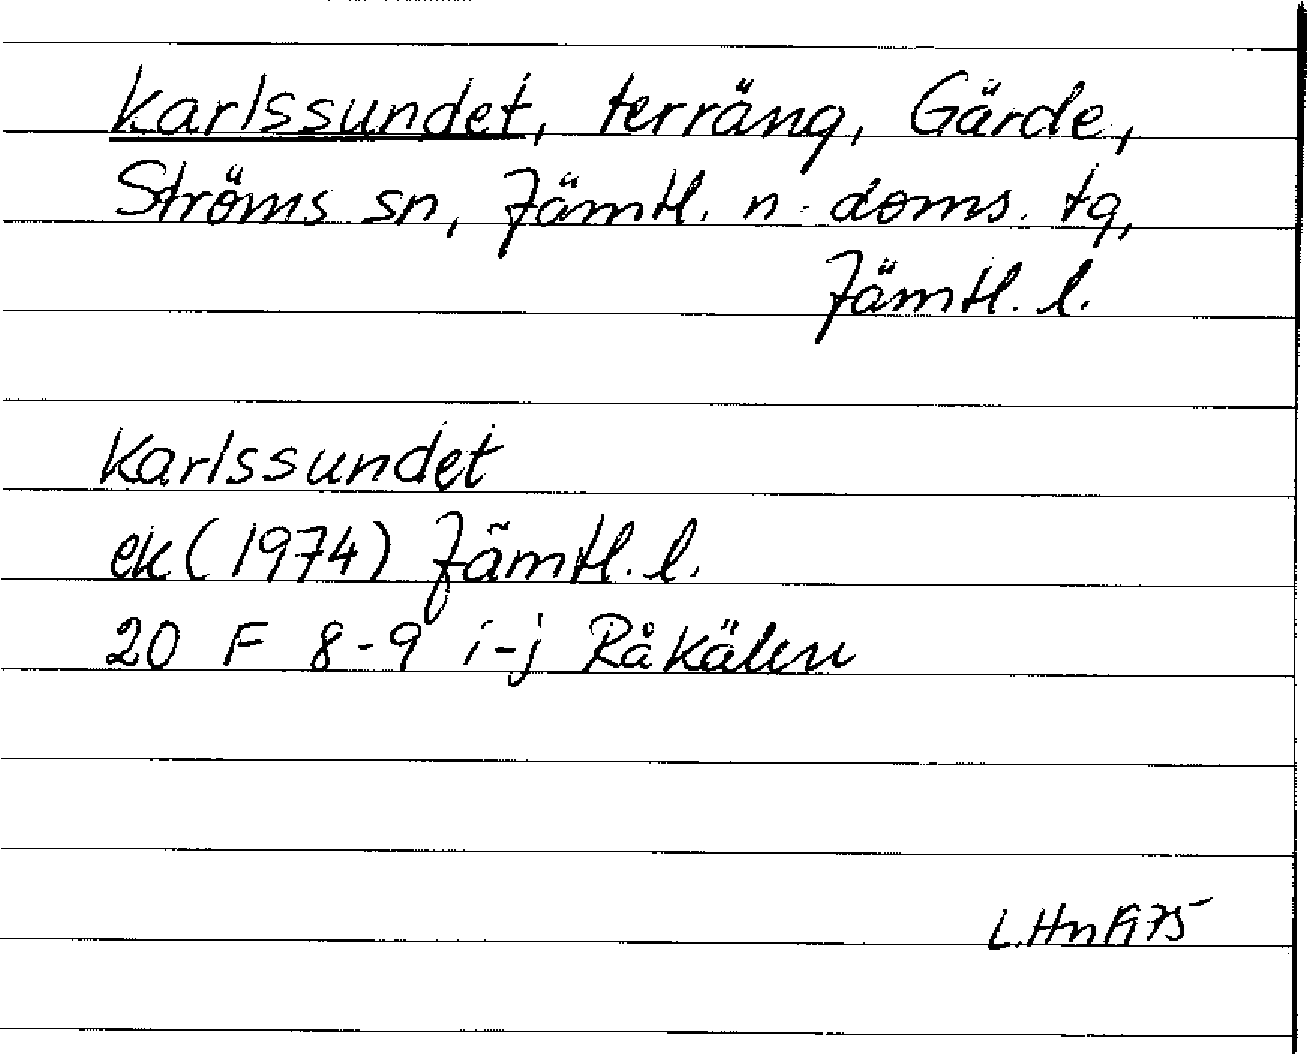 Karlssundet, terräng, Gärde,
Ströms sn, Jämtl. n. doms. tg,
Jämtl. l.
Karlssundet
ek (1974) Jämtl. l.
20 F 8-9 i-j Råkälen
L.Hn 1975